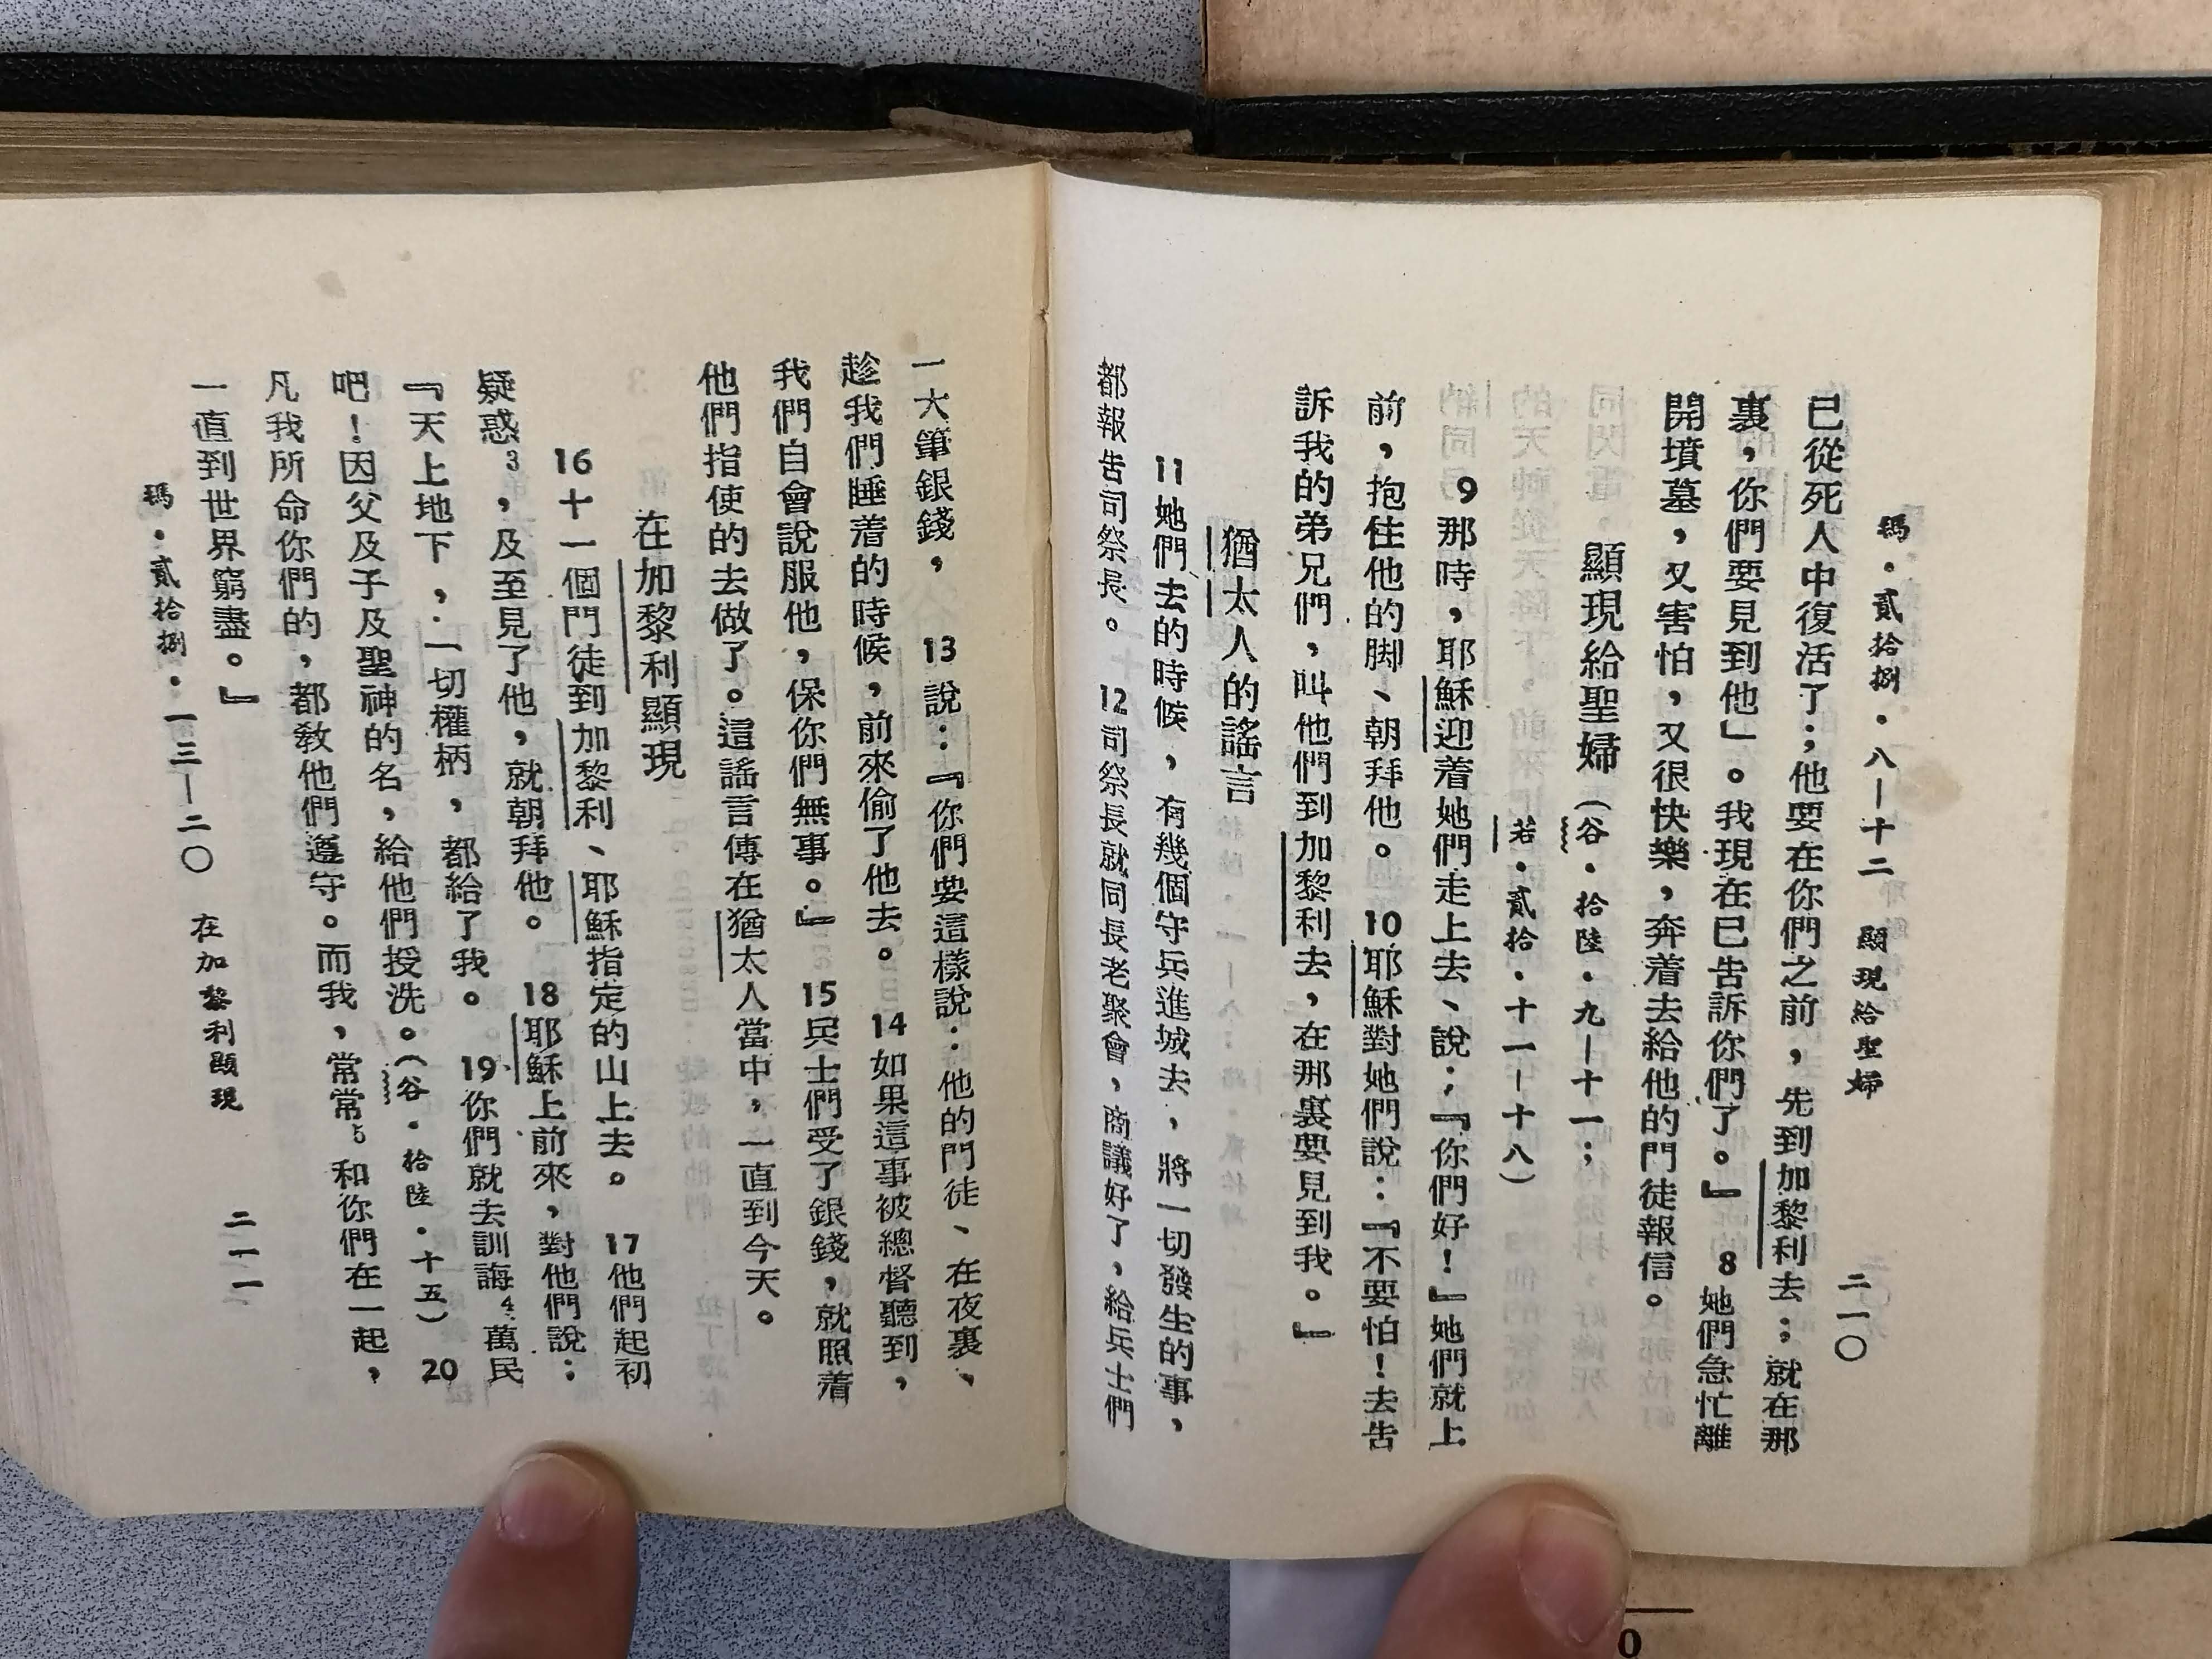 瑪・貳拾捌・八－十二　顯現給聖婦　二一〇
已從死人中復活了；他要在你們之前，先到加黎利去；就在那
裏，你們要見到他」。我現在已告訴你們了。』　8她們急忙離
開墳墓，又害怕，又很快樂，奔着去給他的門徒報信。
顯現給聖婦（谷・拾陸・九－十一；
若・貳拾・十一－十八）
9那時，耶穌迎着她們走上去、說：『你們好！』她們就上
前，抱住他的脚、朝拜他。　10耶穌對她們說：『不要怕！去告
訴我的弟兄們，叫他們到加黎利去，在那裏要見到我。』
猶太人的謠言
11她們去的時候，有幾個守兵進城去，將一切發生的事，
都報告司祭長。　12司祭長就同長老聚會，商議好了，給兵士們
一大筆銀錢，　13說：『你們要這樣說：他的門徒、在夜裏、
趁我們睡着的時候，前來偷了他去。　14如果這事被總督聽到，
我們自會說服他，保你們無事。』　15兵士們受了銀錢，就照着
他們指使的去做了。這謠言傳在猶太人當中，一直到今天。
在加黎利顯現
16十一個門徒到加黎利、耶穌指定的山上去。　17他們起初
疑惑3，及至見了他，就朝拜他。　18耶穌上前來，對他們說：
『天上地下，一切權柄，都給了我。　19你們就去訓誨4萬民
吧！因父及子及聖神的名，給他們授洗。（谷・拾陸・十五）　20
凡我所命你們的，都敎他們遵守。而我，常常5和你們在一起，
一直到世界窮盡。』
瑪・貳拾捌・一三－二〇　在加黎利顯現　二一一
0